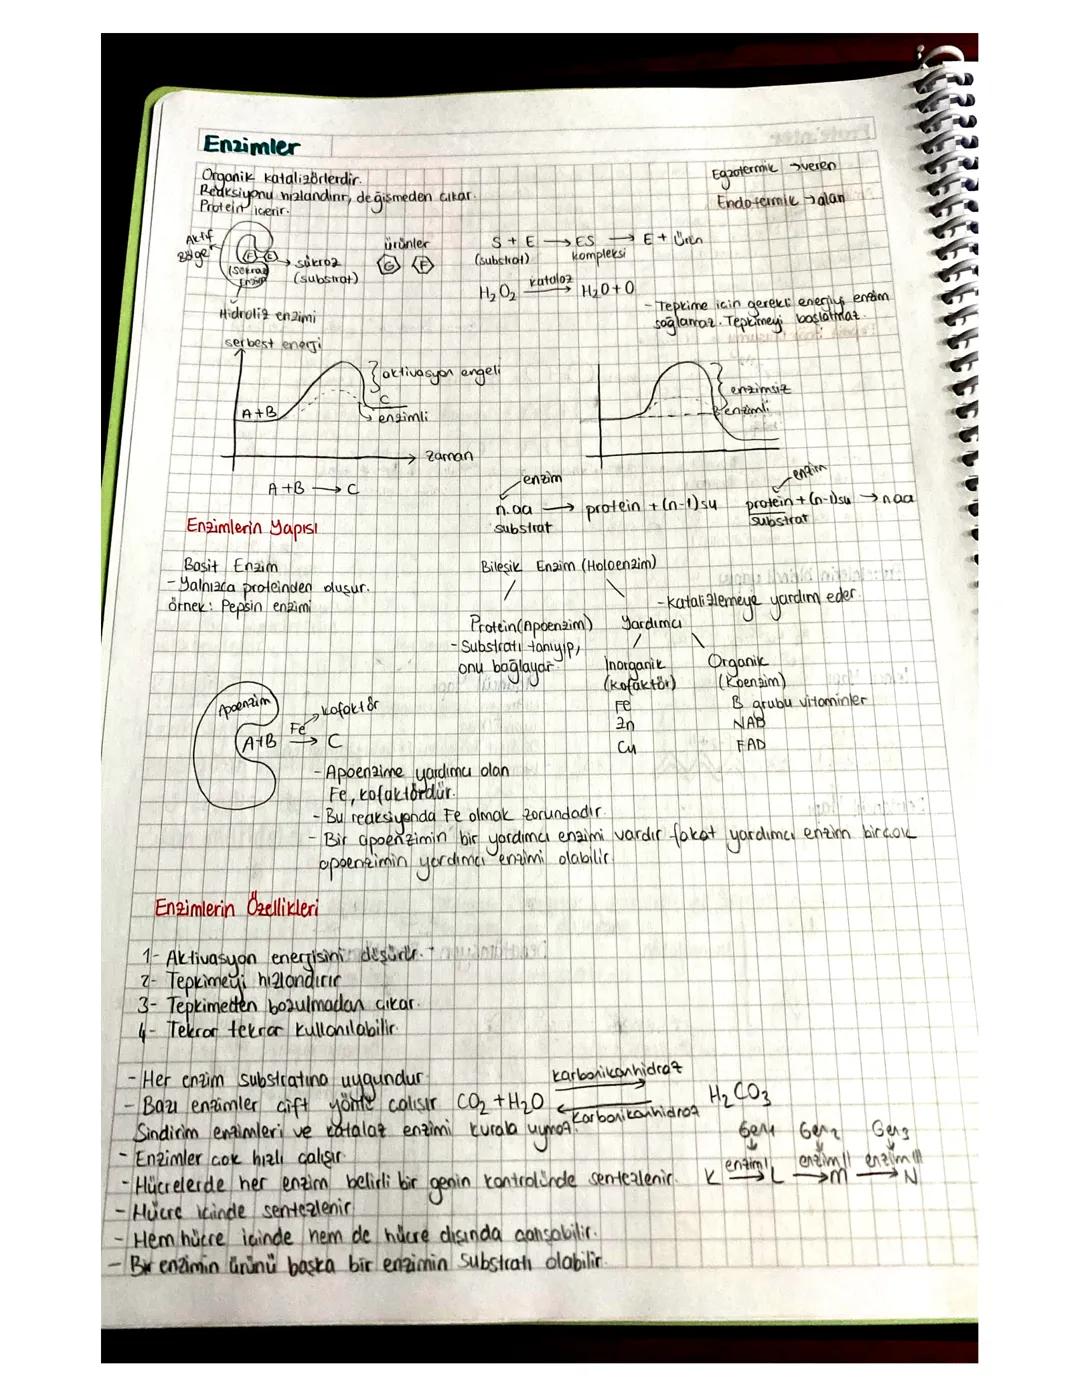 Enzimler
Organik katalizörlerdir.
Reaksiyonu hızlandırır, değişmeden çıkar.
Protein içerir.
Egzotermik → veren
Endotermik → alan
Aktif
Bölge
sükroz
(substrat)
ürünler
G F
Hidroliz enzimi
S + E → ES → E + Ürün
(substrat) kompleksi
H2O2 katalaz → H2O + O
- Tepkime için gerekli enerjiyi enzim
sağlamaz. Tepkimeyi başlatmaz.
serbest enerji
aktivasyon engeli
C
A+B
enzimli
zaman
A+B → C
enzimsiz
enzimli
enzim
n.aa → protein + (n-1)su
substrat
enzim
protein + (n-1)su → n aa
substrat
Enzimlerin Yapısı
Basit Enzim
- Yalnızca proteinden oluşur.
örnek: Pepsin enzimi
Bileşik Enzim (Holoenzim)
- Katalizlemeye yardım eder.
Protein (Apoenzim)
- Substratı tanıyıp,
onu bağlayar
Yardımcı
İnorganik
(Kofaktör)
Fe
Zn
Cu
Organik
(Koenzim)
B grubu vitaminler
NAD
FAD
Apoenzim
kofaktör
A+B Fe → C
- Apoenzime yardımcı olan
Fe, kofaktördür.
- Bu reaksiyonda Fe olmak zorundadır.
- Bir apoenzimin bir yardımcı enzimi vardır fakat yardımcı enzim birçok
apoenzimin yardımcı enzimi olabilir.
Enzimlerin Özellikleri
1- Aktivasyon enerjisini düşürür.
2- Tepkimeyi hızlandırır
3- Tepkimeden bozulmadan çıkar.
4- Tekrar tekrar kullanılabilir
- Her enzim substratına uygundur
- Bazı enzimler çift yönlü çalışır CO2 + H2O karbonikanhidraz H2CO3
karbonikanhidraz
Sindirim enzimleri ve katalaz enzimi kurala uymaz.
- Enzimler çok hızlı çalışır.
Gen1 Gen2 Gen3
- Hücrelerde her enzim belirli bir genin kontrolünde sentezlenir.
K enzim I → L enzim II → M enzim III → N
- Hücre içinde sentezlenir
- Hem hücre içinde hem de hücre dışında çalışabilir.
- Bir enzimin ürünü başka bir enzimin substratı olabilir.